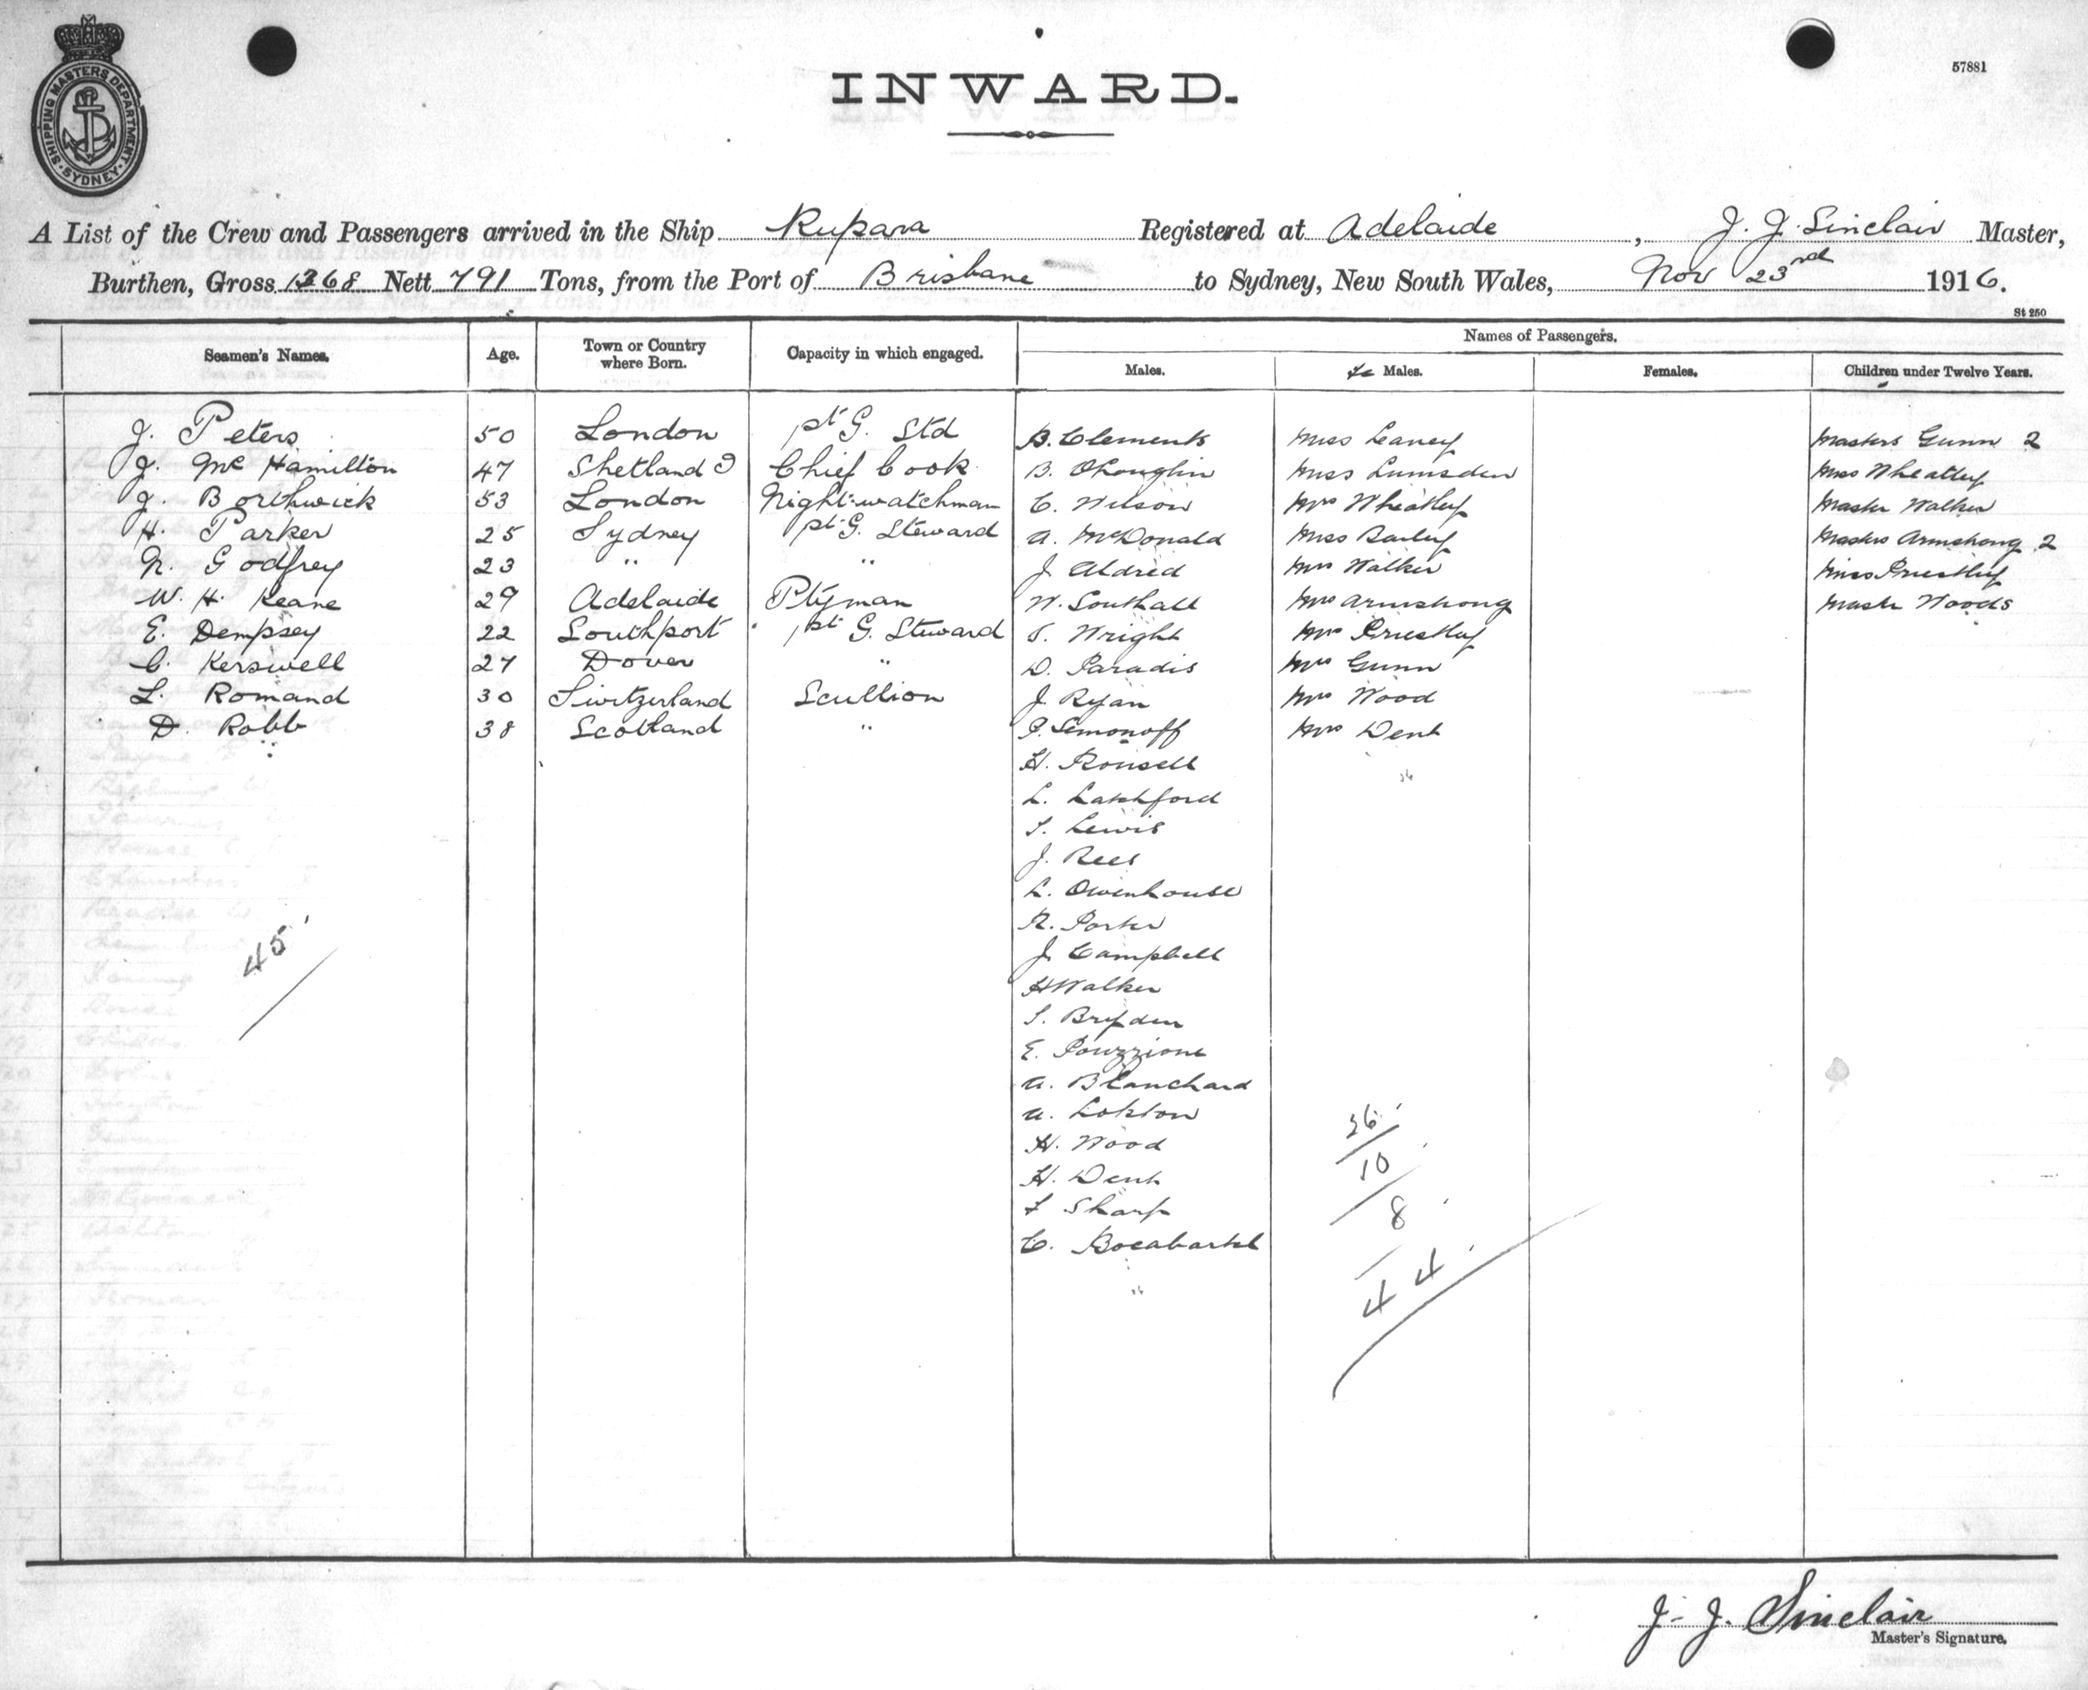 SHIPPING MASTERS DEPARTMENT
SYDNEY
57881
INWARD.
A List of the Crew and Passengers arrived in the Ship Rupara Registered at Adelaide, J. J. Sinclair Master,
Burthen, Gross 1368 Nett 791 Tons, from the Port of Brisbane to Sydney, New South Wales, Nov 23rd 1916.
St 250
Seamen's Names. Age. Town or Country where Born. Capacity in which engaged. Names of Passengers.
Males. Fe Males. Females. Children under Twelve Years.
J. Peters 50 London Pt G. Std B. Clements Miss Leaney Masters Gunn 2
J. Mc Hamilton 47 Shetland I Chief Cook B. OLoughlin Miss Lumsden Miss Wheatley
J. Borthwick 53 London Night-watchman C. Wilson Mrs Wheatley Master Walker
H. Parker 25 Sydney Pt G. Steward A. McDonald Miss Bailey Masters Armstrong 2
N. Godfrey 23 " " J. Aldred Mrs Walker Miss Priestley
W. H. Keane 29 Adelaide Ptyman W. Southall Mrs Armstrong Master Woods
E. Dempsey 22 Southport Pt G. Steward S. Wright Mrs Priestley
C. Kerswell 27 Dover " D. Paradis Mrs Gunn
L. Romand 30 Switzerland Scullion J. Ryan Mrs Wood
D. Robb 38 Scotland " P. Simonoff Mrs Dent
H. Ronsell
L. Latchford
S. Lewis
J. Rees
L. Owenhouse
R. Porter
J. Campbell
H Walker
S. Bryden
E. Pouzzione
A. Blanchard
A. Lokton
H. Wood
H. Dent
F Sharp
C.
45
26
10
8
44
J. J. Sinclair
Master's Signature.